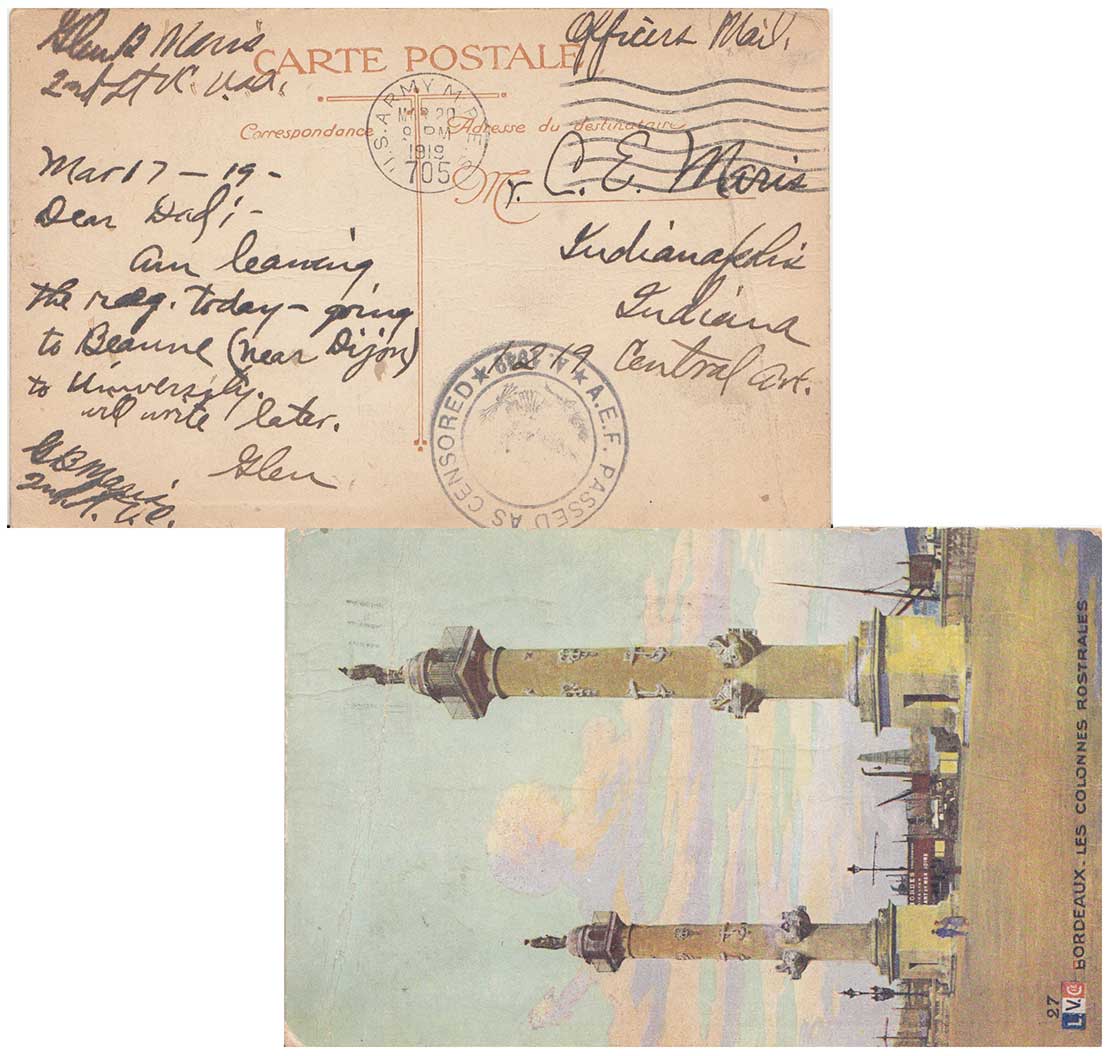 Glen B Maris
2nd Lt V.C. USA.
Officers Mail.
CARTE POSTALE
Correspondance
Adresse du destinataire
U.S. ARMY M.P.E.S.
MAR 20
9 PM
1919
705
Mar 17 - 19 -
Dear Dad; -
Am leaving
the reg. today - going
to Beaune (near Dijon)
to University.
will write later.
Glen
G B Maris
2nd Lt. V.C.
Mr. C. E. Maris
Indianapolis
Indiana
6219 Central Av.
A.E.F. PASSED AS CENSORED
27
L.V.&Cie
BORDEAUX - LES COLONNES ROSTRALES